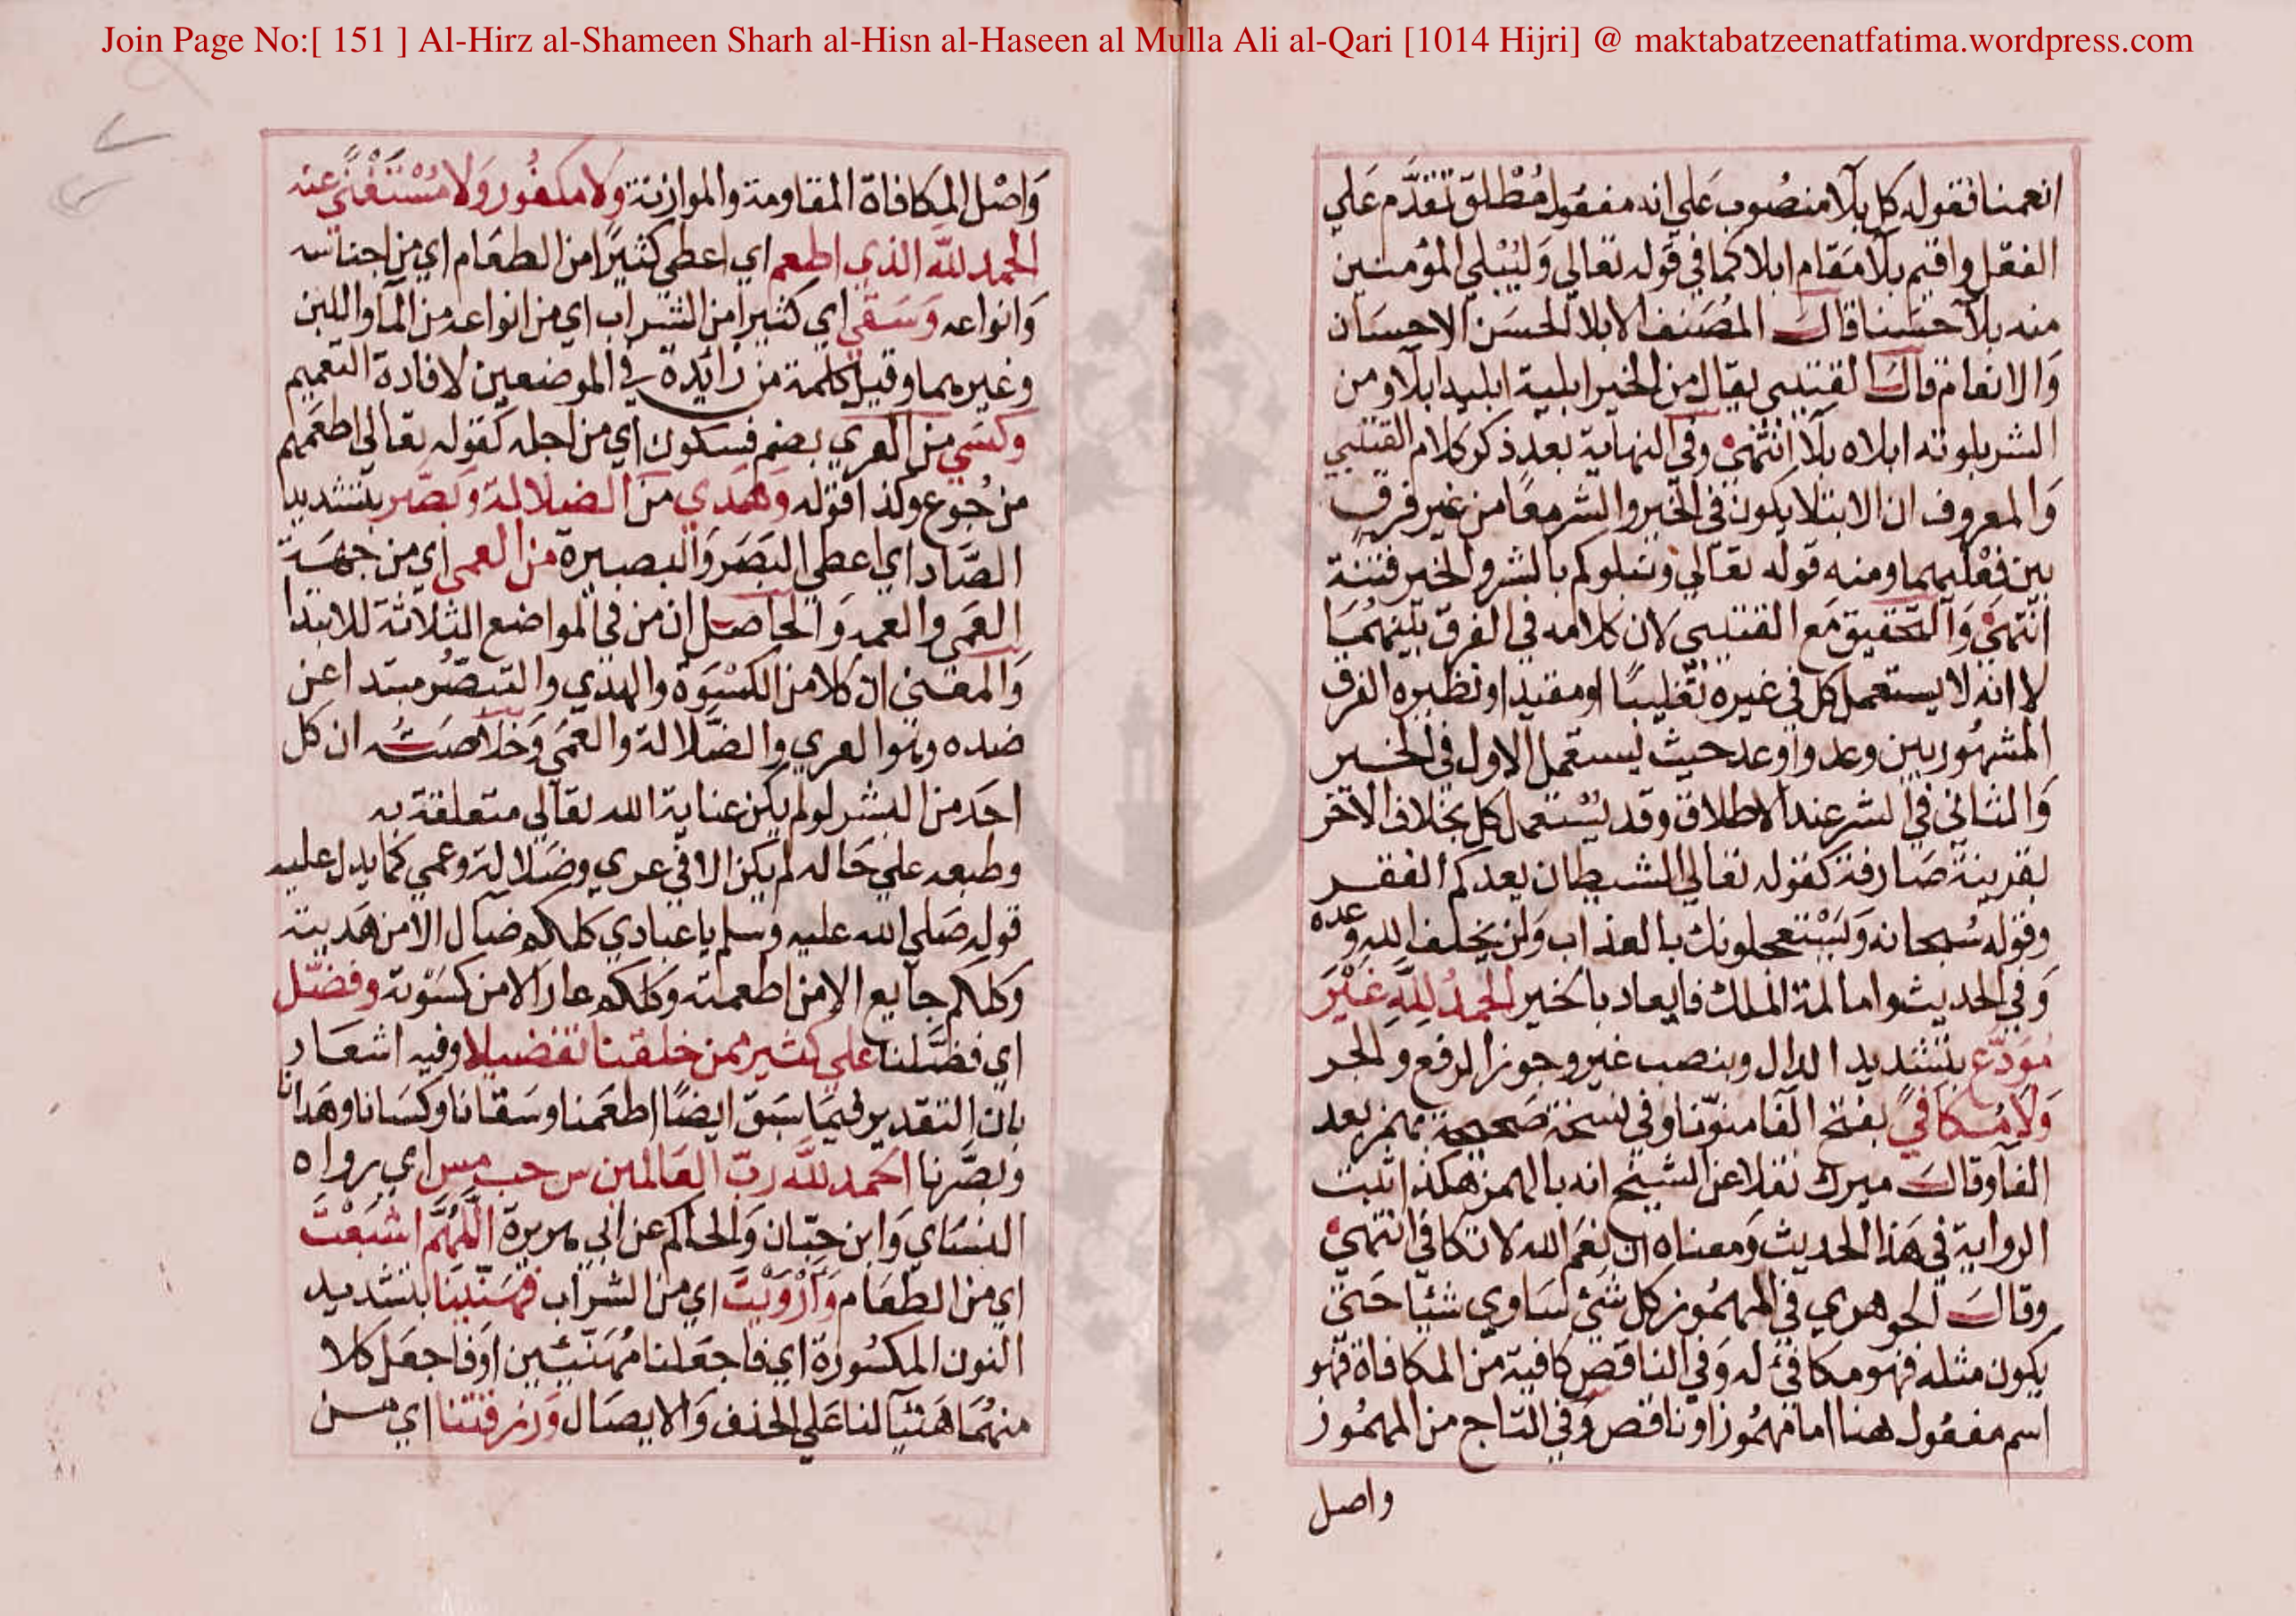 Join Page No:[ 151 ] Al-Hirz al-Shameen Sharh al-Hisn al-Haseen al Mulla Ali al-Qari [1014 Hijri] @ maktabatzeenatfatima.wordpress.com
انعمنا فقوله كل بلآ منصُوب عَلي انه مفعُول مُطْلق تقدَّم عَلي
الفعل واقيم بلآ مَقام ابلا كما في قوله تعَالي وَليُبْلي المؤمنين
منه بلآ حَسَنا قالَ المصَنف الابلا الحسَن الاحسَان
وَالانعام قالَ القتيبي يقال من الخير ابليته ابليه ابلآ ومن
الشر بلوته ابلاه بلآ انتهيٰ وفي النهاية بعد ذكر كلام القتيبي
وَالمعروف ان الابتلا يكون في الخير والشر معًا من غير فرق
بين فعْليهما ومنه قوله تعَالي ونبلوكم بالشر والخير فتنة
انتهيٰ وَالتحقيق مَع القتيبي لان كلامه في الفرق بَينهُمَا
لا انه لا يستعمل كل في غيره تغليبًا او مقيدا ونظيره الفرق
المشهُور بين وعد واوعد حيث يستعمل الاول في الخير
وَالثاني في الشر عند الاطلاق وقد يُسْتعمل كل بخلاف الآخر
بقرينة صَارفة كقوله تعَالي الشيطان يعدكم الفقر
وقوله سُبحانه وَيَسْتعجلونك بالعذاب وَلن يخلف الله وعده
وَفي الحديث واما لمة الملك فايعاد بالخير الحمدُ لِلَّهِ غَيْرَ
مُوَدَّع بتشديد الدال وبنصب غير وجوز الرفع والجر
وَلَا مُكَافيً بفتح الفا منوّنا وفي نسخة صَحيحة بهمز بعد
الفا وقالَ ميرك نقلا عن الشيخ انه بالهمز هكذا ثبت
الرواية في هَذا الحديث وَمعناه ان نِعَم الله لا تكافي انتهيٰ
وقالَ الجوهري في المهمُوز كل شيئ سَاوي شيئا حَتي
يكون مثله فهو مكافئ له وَفي الناقص كافيته من المكافاة فهو
اسم مفعُول هنا اما مهمُوز او ناقص وَفي التاج من المهمُوز
واصل
وَاصْل المكافاة المقاومة والموازنة وَلا مكفُور وَلا مُسْتَغْنًي عنه
الحمد للّه الذي اطعم اي اعطي كثيرًا من الطعَام اي من اجناسه
وَانواعه وَسَقَي اي كثيرا من الشراب اي من انواعه من المآ واللبن
وغيرهما وقيل كلمة من زائدة في الموضعين لافادة التعميم
وكسَي من العري بضم فسكون اي من اجله كقوله تعَالي اطعَمهم
من جُوع وكذا قوله وَهَدي منَ الضلالة وَبَصَّر بتشديد
الصَّاد اي اعطي البَصَر وَالبصيرة من العمي اي من جهَة
العَمي والعمه وَالحاصل ان من في المواضع الثلاثة للابتدا
وَالمعني ان كلا من الكسْوَة والهدي والتبصُّر مبتدا عن
ضده وهو العري والضَّلالة والعَمَي وَخلاصَته ان كل
احَد من البشر لو لم يكن عناية الله تعَالي متعلقة به
وطبعه علي حَاله لم يكن الا في عري وضَلالة وعمي كما يدل عليه
قوله صَلي الله عليه وسلم يا عبادي كلكم ضال الا من هَديته
وكلكم جايع الا من اطعمته وكلكم عار الا من كسَوْته وفضّل
اي فضَّلنا علي كثير ممن خلقنا تفضيلا وفيه اشعَار
بان التقدير فيمَا سَبق ايضًا اطعَمنا وسَقانا وكسَانا وهَدانا
وبصَّرنا الحمد للّه ربّ العَالمين س حب مس اي رواه
النسَاي وَابن حبّان وَالحاكم عن ابي هريرة اللَّهُمَّ اشبَعْتَ
اي من الطعَام وَاَرْوَيْتَ اي من الشراب فهَنّيْنَا بتشديد
النون المكسُورة اي فاجعَلنا مُهَنّئين اوفاجعَل كلا
منهُمَا هَنيئا لنا عَلي الحذف وَالايصَال وَرزقتنا اي من